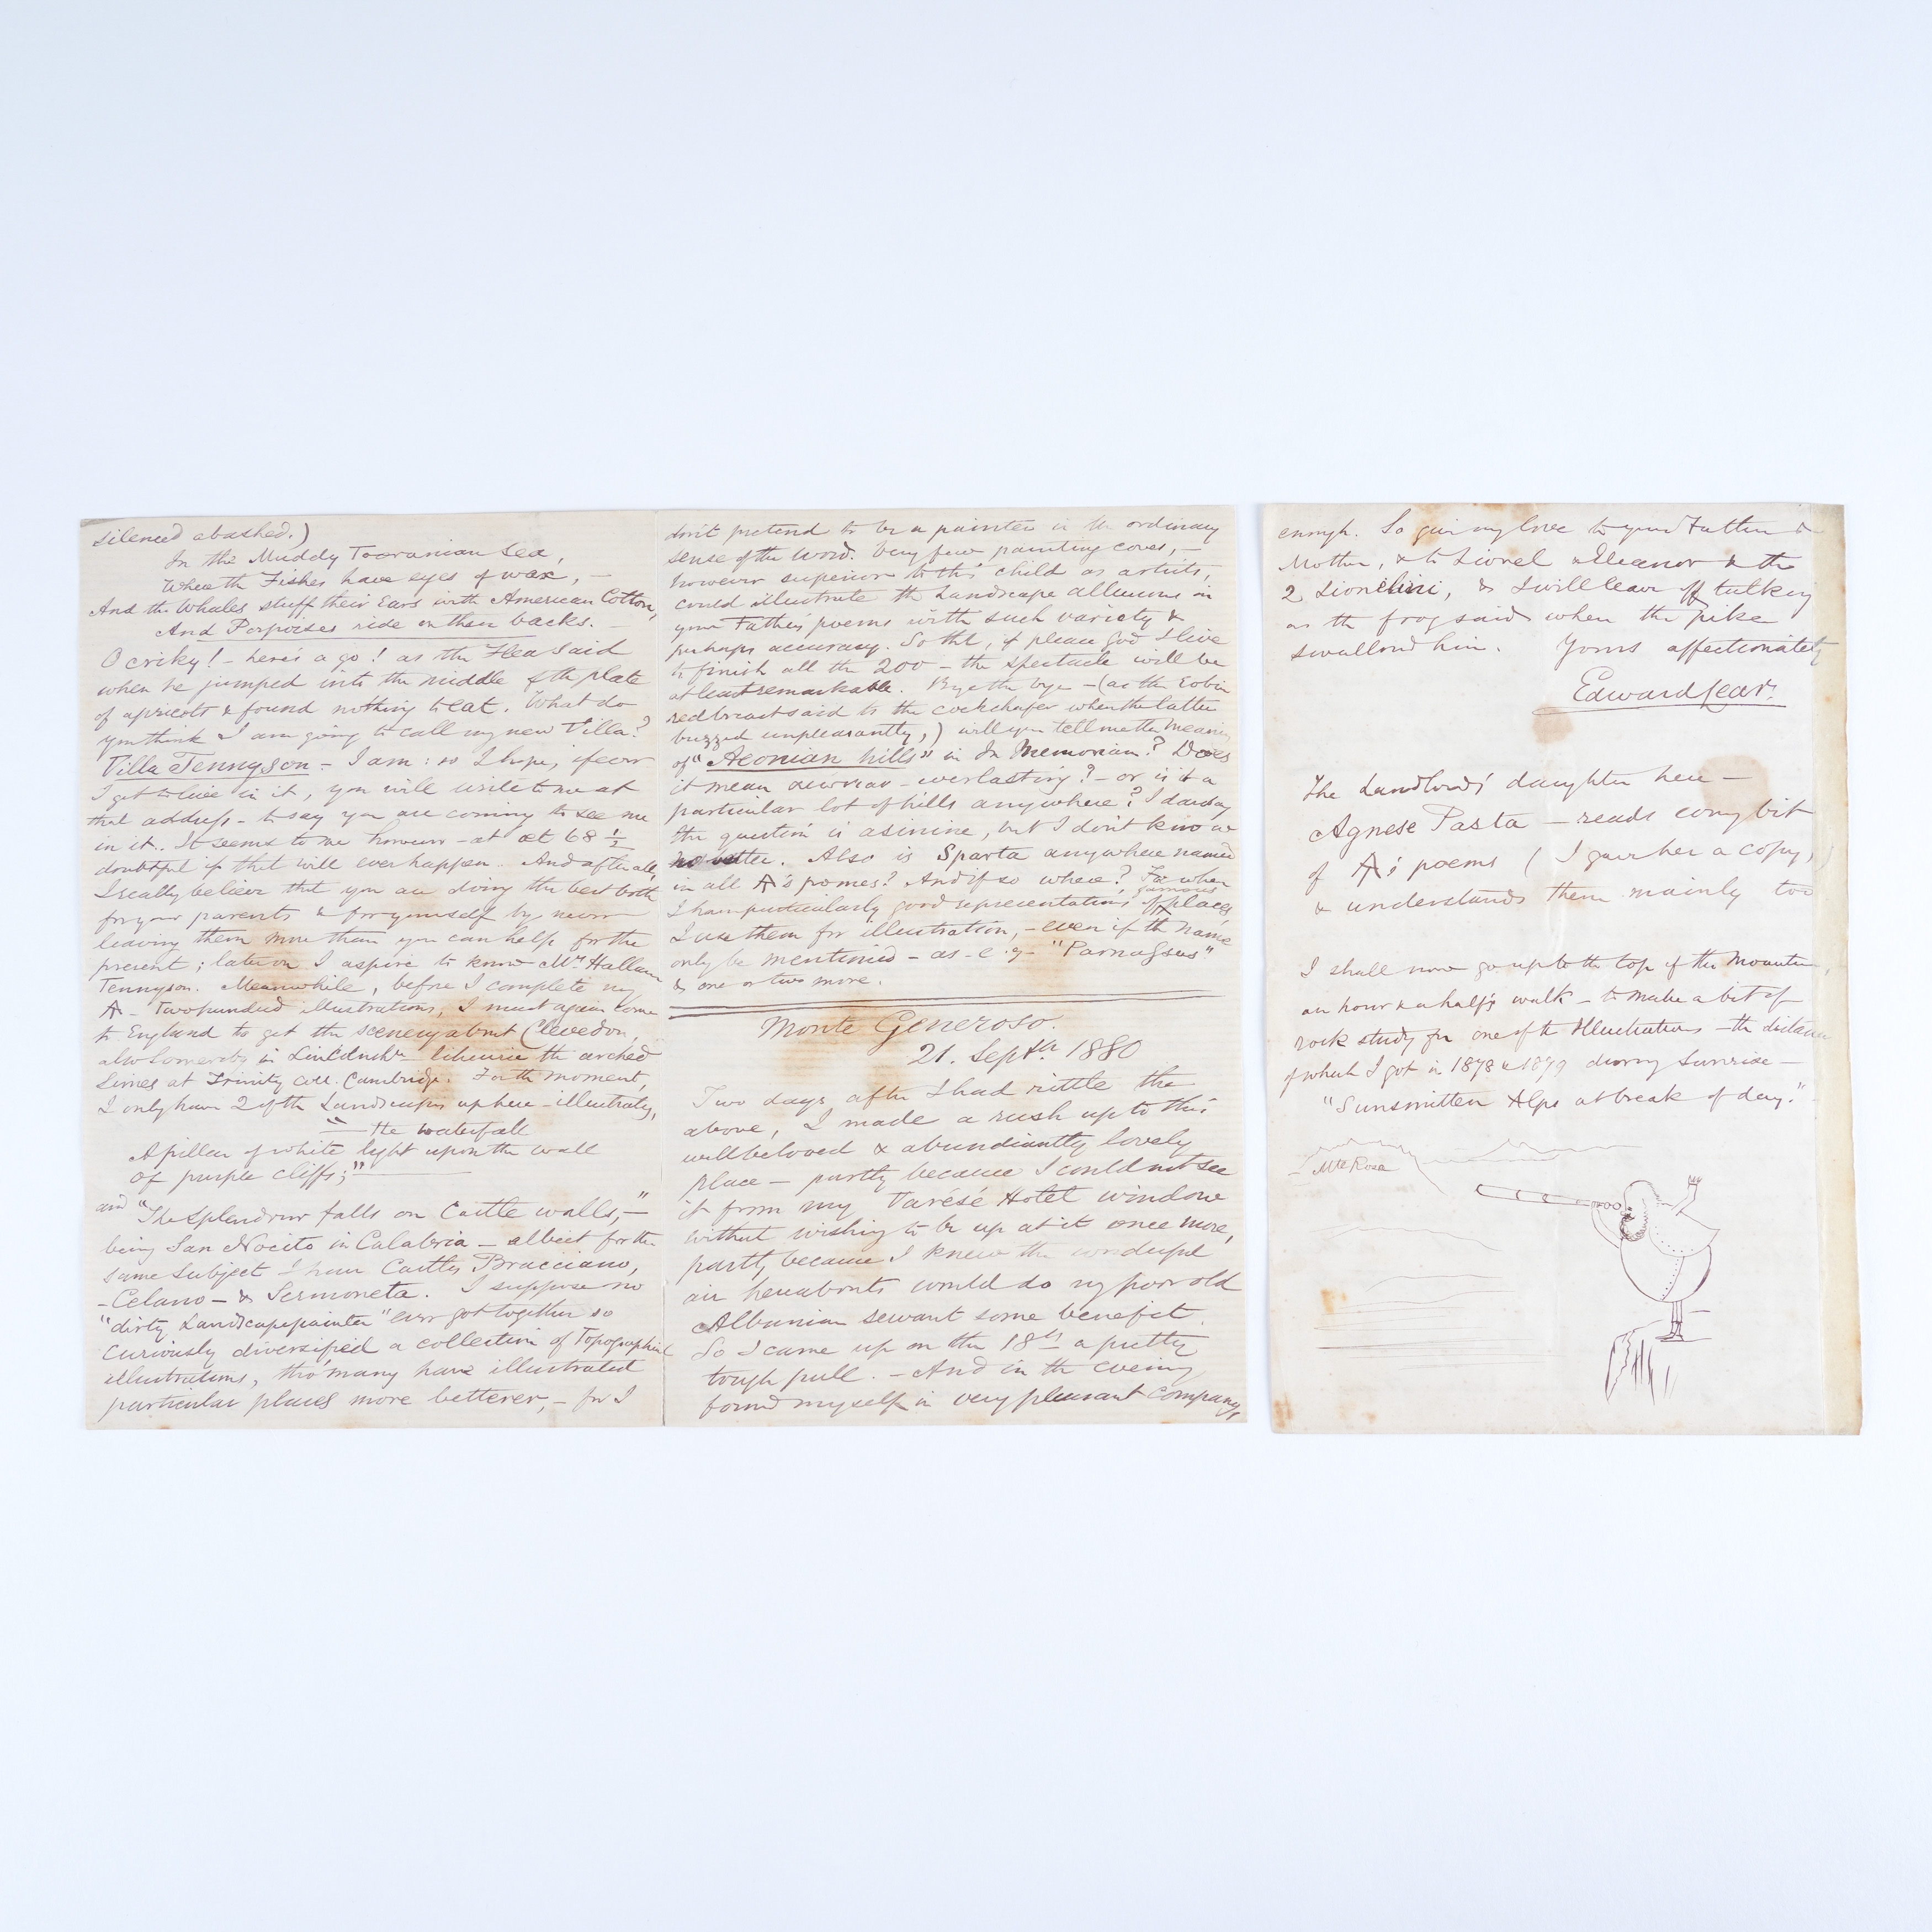 silenced abashed.)
In the Middy Tooranian Sea,
Where the Fishes have eyes of wax, —
And the Whales stuff their Ears with American Cotton,
And Porpoises ride on their backs. —
O criky! — here's a go! as the Flea said
when he jumped into the middle of the plate
of apricots & found nothing to eat. What do
you think I am going to call my new Villa?
Villa Tennyson — I am: so I hope, if ever
I get to live in it, you will write to me at
that address — to say you are coming to see me
in it. It seems to me however — at æt 68 ½
doubtful if that will ever happen. And after all,
I really believe that you are doing the best both
for your parents & for yourself by never
leaving them more than you can help for the
present; later on I aspire to know Mrs Hallam
Tennyson. Meanwhile, before I complete my
AT — Two hundred illustrations, I must again come
to England to get the scenery about Clevedon,
also Somersby in Lincolnshr. — likewise the arched
Limes at Trinity Coll. Cambridge. For the moment,
I only have 2 of the Landscapes up here — illustratg,
"— the waterfall
A pillar of white light upon the wall
Of purple cliffs;"
and "The splendour falls on Castle walls," —
being San Nocito in Calabria — albeit for the
same subject I have Castles Bracciano,
— Celano — & Sermoneta. I suppose no
"dirty Landscapepainter" ever got together so
curiously diversified a collection of Topographical
illustrations, tho' many have illustrated
particular places more betterer, — for I
don't pretend to be a painter in the ordinary
sense of the word. Very few painting coves, —
however superior to this child as artists,
could illustrate the Landscape allusions in
your Father's poems with such variety &
perhaps accuracy. So tht, if please God I live
to finish all the 200 — the spectacle will be
at least remarkable. Bye the bye — (as the Robin
redbreast said to the cockchafer when the latter
buzzed unpleasantly,) will you tell me the meaning
of "Aeonian hills" in In Memoriam? Does
it mean — everlasting? — or is it a
particular lot of hills anywhere? I daresay
the question is asinine, but I don't know
no better. Also is Sparta anywhere named
in all AT's pomes? And if so where? For when
I have particularly good representations of famous places,
I use them for illustration, — even if the name
only be mentioned — as — e.g — "Parnassus"
& one or two more.
Monte Generoso.
21. Septbr 1880
Two days after I had rittle the
above, I made a rush up to this
wellbeloved & abundiantly lovely
place — partly because I could not see
it from my Varésé Hotel window
without wishing to be up at it once more,
partly because I knew the wonderful
air hereabouts would do my poor old
Albanian servant some benefit.
So I came up on the 18th a pretty
tough pull. — And in the evening
found myself in very pleasant company,
enough. So give my love to your Father &
Mother, & to Lionel & Eleanor & the
2 Lionellini, & I will leave off talking
as the frog said when the pike
swallowed him. Yours affectionately
Edward Lear.
The Landlord's daughter here —
Agnese Pasta — reads every bit
of AT's poems (I gave her a copy,)
& understands them mainly too
I shall now go up to the top of the Mountain,
an hour & a half's walk — to make a bit of
rock study for one of the Illustrations — the distance
of which I got in 1878 & 1879 during Sunrise —
"Sunsmitten Alps at break of day."
Mte Rosa